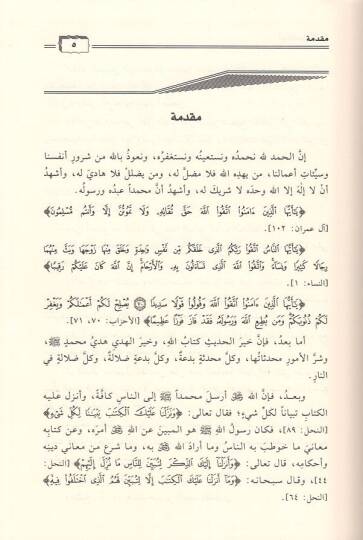 مقدمة
٥
مقدمة
إنَّ الحمد لله نحمدُه ونستعينُه ونستغفرُه، ونعوذُ بالله من شرورِ أنفسنا
وسيِّئاتِ أعمالنا، من يهدِه الله فلا مضلَّ له، ومن يضللْ فلا هاديَ له، وأشهدُ
أنْ لا إلٰهَ إلا الله وحدَه لا شريكَ له، وأشهدُ أنَّ محمداً عبدُه ورسولُه.
﴿يَٰٓأَيُّهَا ٱلَّذِينَ ءَامَنُوا۟ ٱتَّقُوا۟ ٱللَّهَ حَقَّ تُقَاتِهِۦ وَلَا تَمُوتُنَّ إِلَّا وَأَنتُم مُّسْلِمُونَ﴾
[آل عمران: ١٠٢].
﴿يَٰٓأَيُّهَا ٱلنَّاسُ ٱتَّقُوا۟ رَبَّكُمُ ٱلَّذِى خَلَقَكُم مِّن نَّفْسٍ وَٰحِدَةٍ وَخَلَقَ مِنْهَا زَوْجَهَا وَبَثَّ مِنْهُمَا
رِجَالًا كَثِيرًا وَنِسَآءً وَٱتَّقُوا۟ ٱللَّهَ ٱلَّذِى تَسَآءَلُونَ بِهِۦ وَٱلْأَرْحَامَ إِنَّ ٱللَّهَ كَانَ عَلَيْكُمْ رَقِيبًا﴾
[النساء: ١].
﴿يَٰٓأَيُّهَا ٱلَّذِينَ ءَامَنُوا۟ ٱتَّقُوا۟ ٱللَّهَ وَقُولُوا۟ قَوْلًا سَدِيدًا ۝٧٠ يُصْلِحْ لَكُمْ أَعْمَٰلَكُمْ وَيَغْفِرْ
لَكُمْ ذُنُوبَكُمْ وَمَن يُطِعِ ٱللَّهَ وَرَسُولَهُۥ فَقَدْ فَازَ فَوْزًا عَظِيمًا﴾ [الأحزاب: ٧٠، ٧١].
أما بعدُ، فإنَّ خيرَ الحديثِ كتابُ اللهِ، وخيرَ الهدي هديُ محمدٍ ﷺ،
وشرَّ الأمورِ محدثاتُها، وكلَّ محدثةٍ بدعةٌ، وكلَّ بدعةٍ ضلالةٌ، وكلَّ ضلالةٍ في
النارِ.
وبعدُ، فإنَّ الله أرسلَ محمداً ﷺ إلى الناسِ كافَّةً، وأنزل عليه
الكتابَ تبياناً لكلِّ شيءٍ؛ فقال تعالى: ﴿وَنَزَّلْنَا عَلَيْكَ ٱلْكِتَٰبَ تِبْيَٰنًا لِّكُلِّ شَىْءٍ﴾
[النحل: ٨٩]، فكان رسولُ اللهِ ﷺ هو المبينَ عن اللهِ أمرَه، وعن كتابِه
معانيَ ما خوطبَ به الناسُ وما أرادَ الله به، وما شرع من معاني دينِه
وأحكامِه، قال تعالى: ﴿وَأَنزَلْنَآ إِلَيْكَ ٱلذِّكْرَ لِتُبَيِّنَ لِلنَّاسِ مَا نُزِّلَ إِلَيْهِمْ﴾ [النحل:
٤٤]، وقال سبحانه: ﴿وَمَآ أَنزَلْنَا عَلَيْكَ ٱلْكِتَٰبَ إِلَّا لِتُبَيِّنَ لَهُمُ ٱلَّذِى ٱخْتَلَفُوا۟ فِيهِ﴾
[النحل: ٦٤].